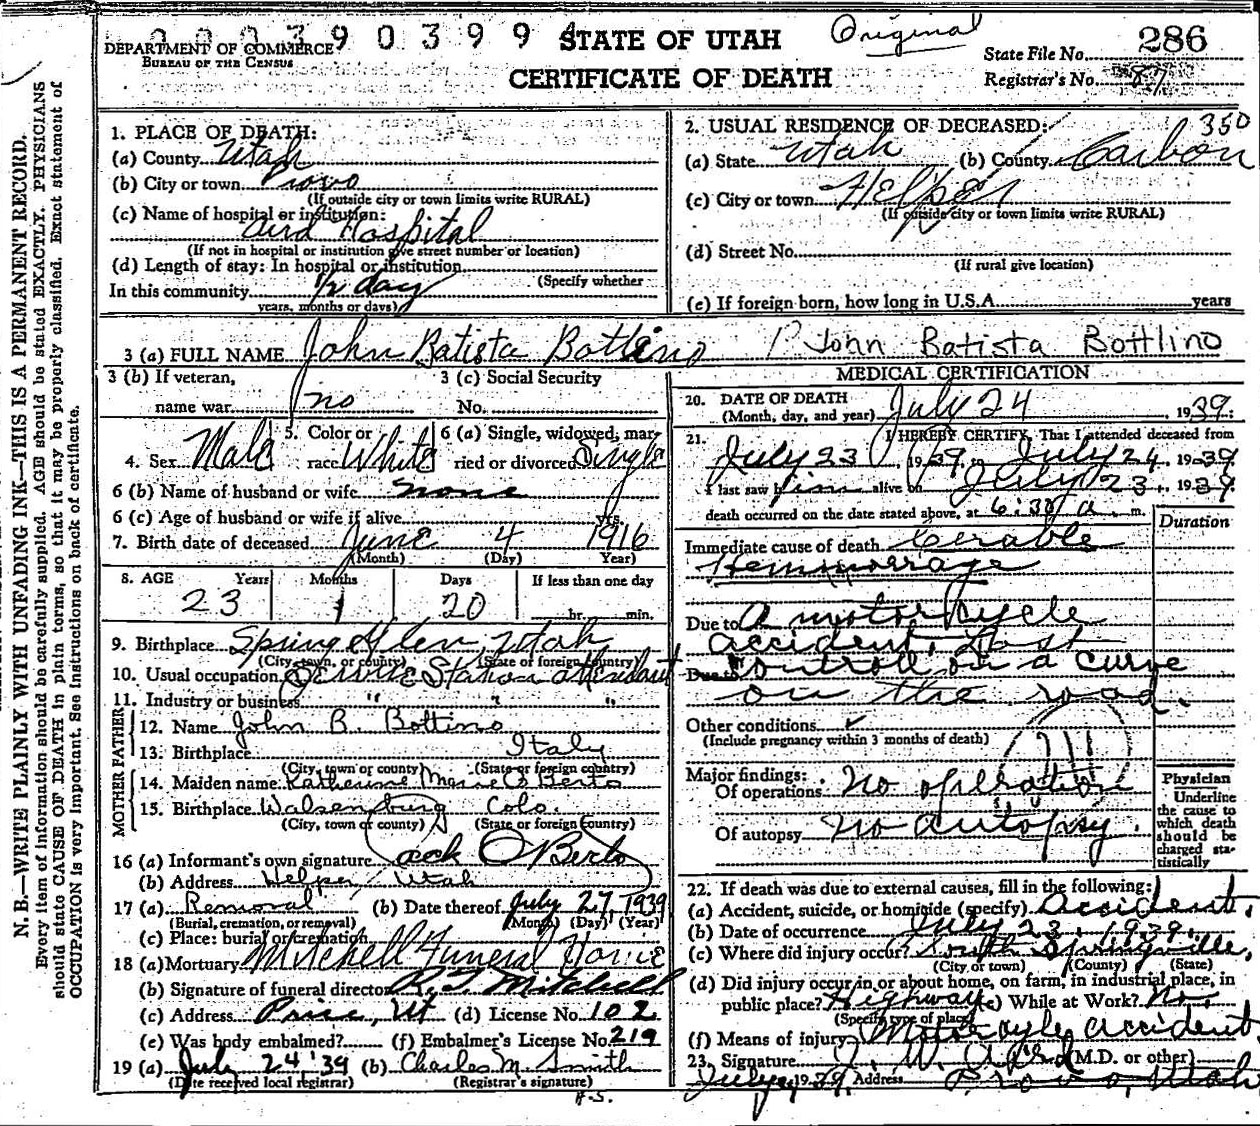 0 0 0 3 9 0 3 9 9 4
STATE OF UTAH
Original
286
DEPARTMENT OF COMMERCE
BUREAU OF THE CENSUS
CERTIFICATE OF DEATH
State File No.
Registrar's No. 87
N. B.—WRITE PLAINLY WITH UNFADING INK—THIS IS A PERMANENT RECORD.
Every item of information should be carefully supplied. AGE should be stated EXACTLY. PHYSICIANS
should state CAUSE OF DEATH in plain terms, so that it may be properly classified. Exact statement of
OCCUPATION is very important. See instructions on back of certificate.
1. PLACE OF DEATH:
(a) County Utah
(b) City or town Provo
(If outside city or town limits write RURAL)
(c) Name of hospital or institution:
Aird Hospital
(If not in hospital or institution give street number or location)
(d) Length of stay: In hospital or institution
(Specify whether
In this community 1/2 day
years, months or days)
2. USUAL RESIDENCE OF DECEASED: 350
(a) State Utah (b) County Carbon
(c) City or town Helper
(If outside city or town limits write RURAL)
(d) Street No.
(If rural give location)
(e) If foreign born, how long in U.S.A. years
3 (a) FULL NAME John Batista Bottlino John Batista Bottlino
3 (b) If veteran, 3 (c) Social Security
name war no No.
4. Sex Male 5. Color or race White 6 (a) Single, widowed, married or divorced Single
6 (b) Name of husband or wife none
6 (c) Age of husband or wife if alive yrs.
7. Birth date of deceased June 4 1916
(Month) (Day) Year)
8. AGE Years Months Days If less than one day
23 1 20 hr. min.
9. Birthplace Spring Glen, Utah
(City town, or county) (State or foreign country)
10. Usual occupation Service Station attendant
11. Industry or business " " "
FATHER
12. Name John B. Bottino
13. Birthplace Italy
(City, town or county) (State or foreign country)
MOTHER
14. Maiden name Katherine Marie O Berto
15. Birthplace Walsenburg Colo.
(City, town or county) (State or foreign country)
16 (a) Informant's own signature Jack O Berto
(b) Address Helper Utah
17 (a) Removal (b) Date thereof July 27, 1939
(Burial, cremation, or removal) (Month) (Day) (Year)
(c) Place: burial or cremation
18 (a) Mortuary Mitchell Funeral Home
(b) Signature of funeral director R. T. Mitchell
(c) Address Price, Ut (d) License No. 102
(e) Was body embalmed? (f) Embalmer's License No. 219
19 (a) July 24, '39 (b) Charles M. Smith
(Date received local registrar) (Registrar's signature)
H.S.
MEDICAL CERTIFICATION
20. DATE OF DEATH
(Month, day, and year) July 24, 1939:
21. I HEREBY CERTIFY, That I attended deceased from
July 23, 1939, to July 24, 1939
I last saw him alive on July 23, 1939
death occurred on the date stated above, at 6:30 a. m.
Duration
Immediate cause of death Cerable
Hemmorrage
Due to A motor Cycle
accident. Lost
Due to controll on a curve
on the road.
Other conditions
(Include pregnancy within 3 months of death)
Major findings:
Of operations No operation
Of autopsy No autopsy.
Physician
Underline
the cause to
which death
should be
charged sta-
tistically
22. If death was due to external causes, fill in the following:
(a) Accident, suicide, or homicide (specify) Accident.
(b) Date of occurrence July 23, 1939.
(c) Where did injury occur? South Springville,
(City or town) (County) (State)
(d) Did injury occur in or about home, on farm, in industrial place, in
public place? Highway (e) While at Work? No.
(Specify type of place)
(f) Means of injury Motorcycle accident
23. Signature J. W. Aird (M.D. or other)
July 1939. Address Provo, Utah